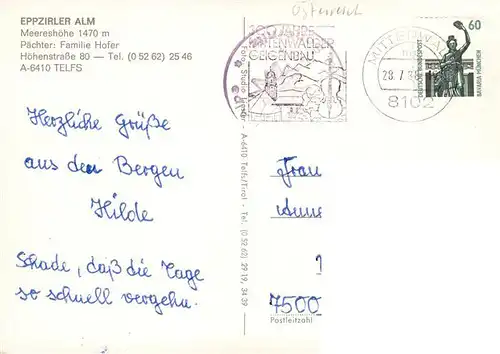 EPPZIRLER ALM
Meereshöhe 1470 m
Pächter: Familie Hofer
Höhenstraße 80 — Tel. (0 52 62) 25 46
A-6410 TELFS
Österreich
JAHRE
GEIGENBAU
MITTENWALD
28.7.
8102
60
DEUTSCHE BUNDESPOST
BAVARIA MÜNCHEN
Herzliche Grüße
aus den Bergen
Hilde
Schade, daß die Tage
so schnell vergehn.
Foto Studio
A-6410 Telfs/Tirol - Tel. (0 52 62) 29 19, 34 39
Frau
7500
Postleitzahl